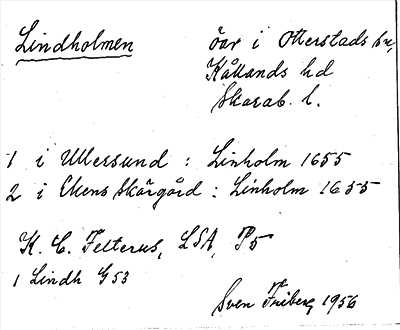 Lindholmen
öar i Otterstads sn,
Kållands hd
Skarab. l.
1 i Ullersund : Linholm 1655
2 i Ekens Skärgård : Linholm 1655
K. C. Felterus, LSA, P5
1 Lindh G53
Sven Friberg 1956